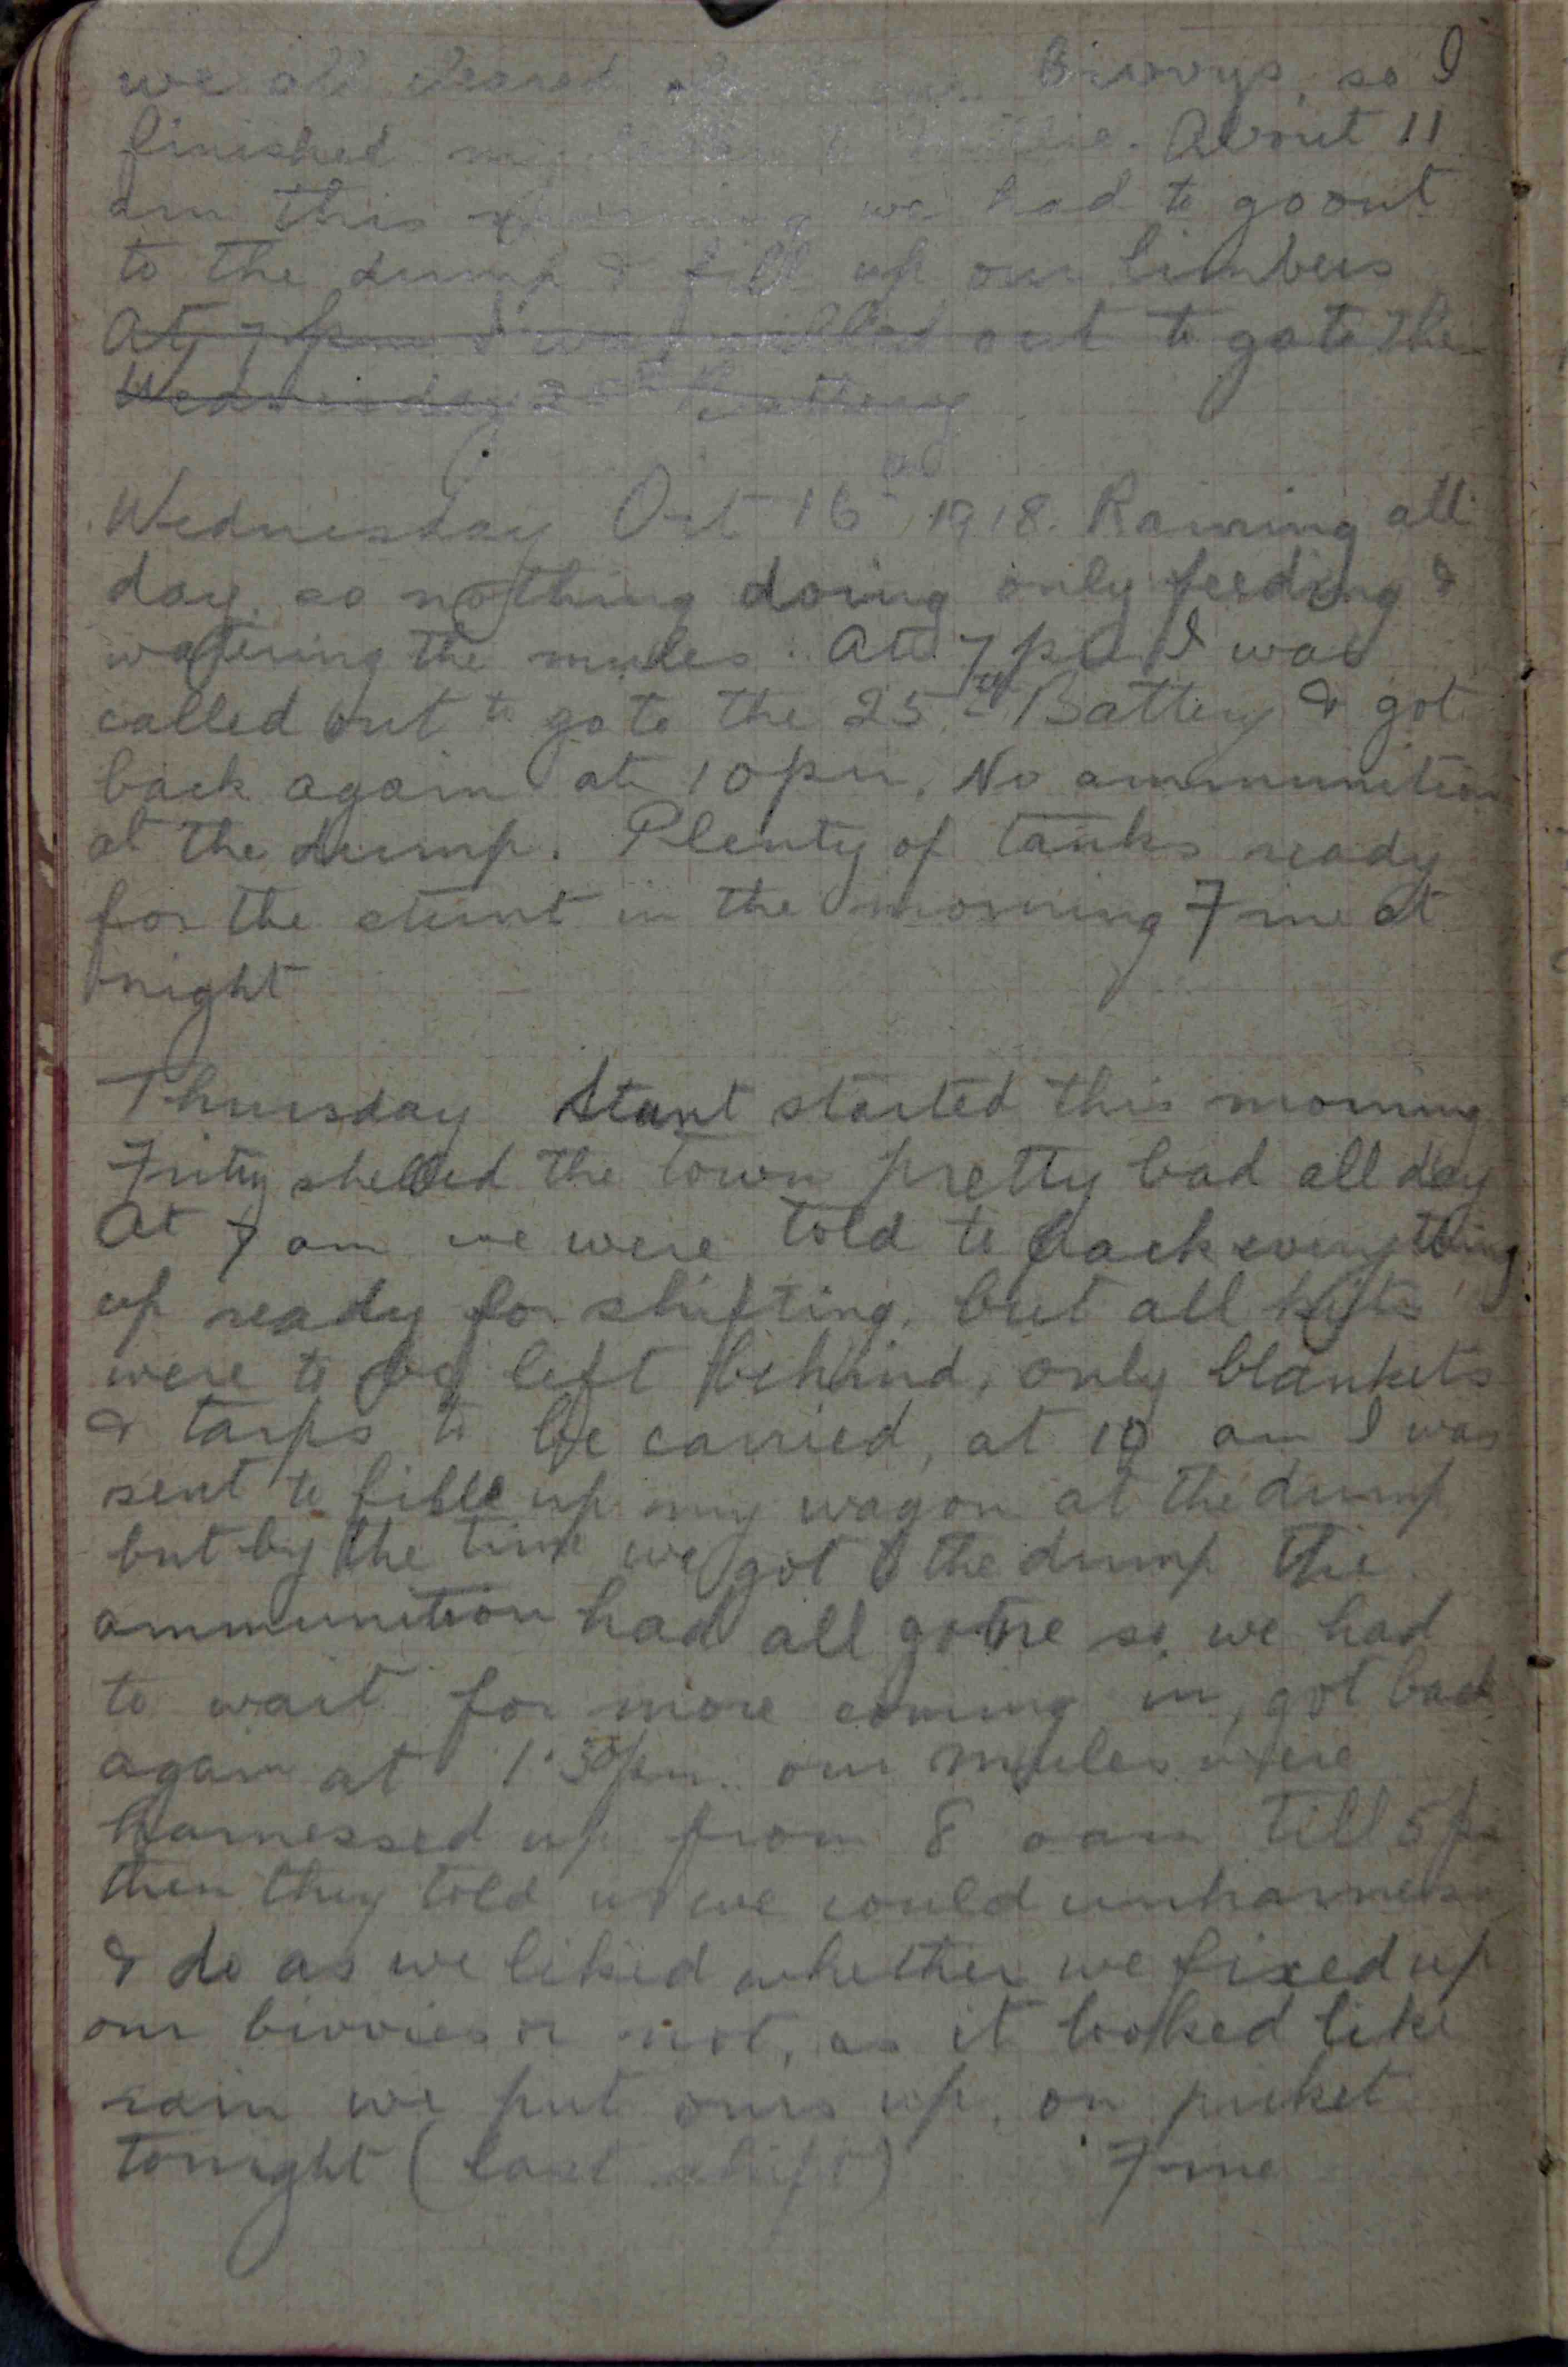 we all cleared Bivvys, so I
finished my letter to . About 11
am this morning we had to go out
to the dump & fill up our limbers
At 7 pm I was called out to go to the
Wednesday 25th Battery
Wednesday Oct 16th 1918. Raining all
day, so nothing doing only feeding &
watering the mules. At 7 pm I was
called out to go to the 25th Battery & got
back again at 10 pm, No ammunition
at the dump. Plenty of tanks ready
for the stunt in the morning Fine at
night
Thursday Stunt started this morning
Fritz shelled the town pretty bad all day
At 7 am we were told to pack everything
up ready for shifting, but all kits
were to be left behind, only blankets
& tarps to be carried, at 10 am I was
sent to fill up my wagon at the dump
but by the time we got to the dump the
ammunition had all gone so we had
to wait for more coming in, got back
again at 1.30 pm. our mules were
harnessed up from 8 am till 5 pm
then they told us we could unharness
& do as we liked whether we fixed up
our bivvies or not, as it looked like
rain we put ours up, on picket
tonight (last shift) Fine